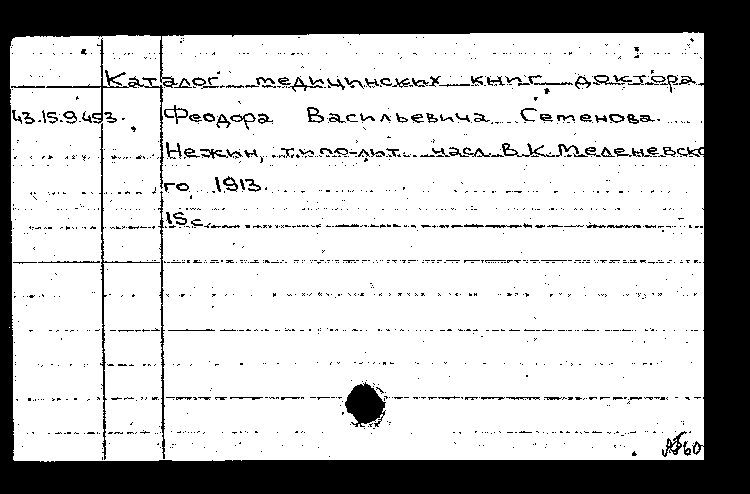 Каталог медицинских книг доктора
43.15.9.453. Феодора Васильевича Семенова.
Нежин, типо-лит. насл. В.К. Меленевско
го, 1913.
15 с.